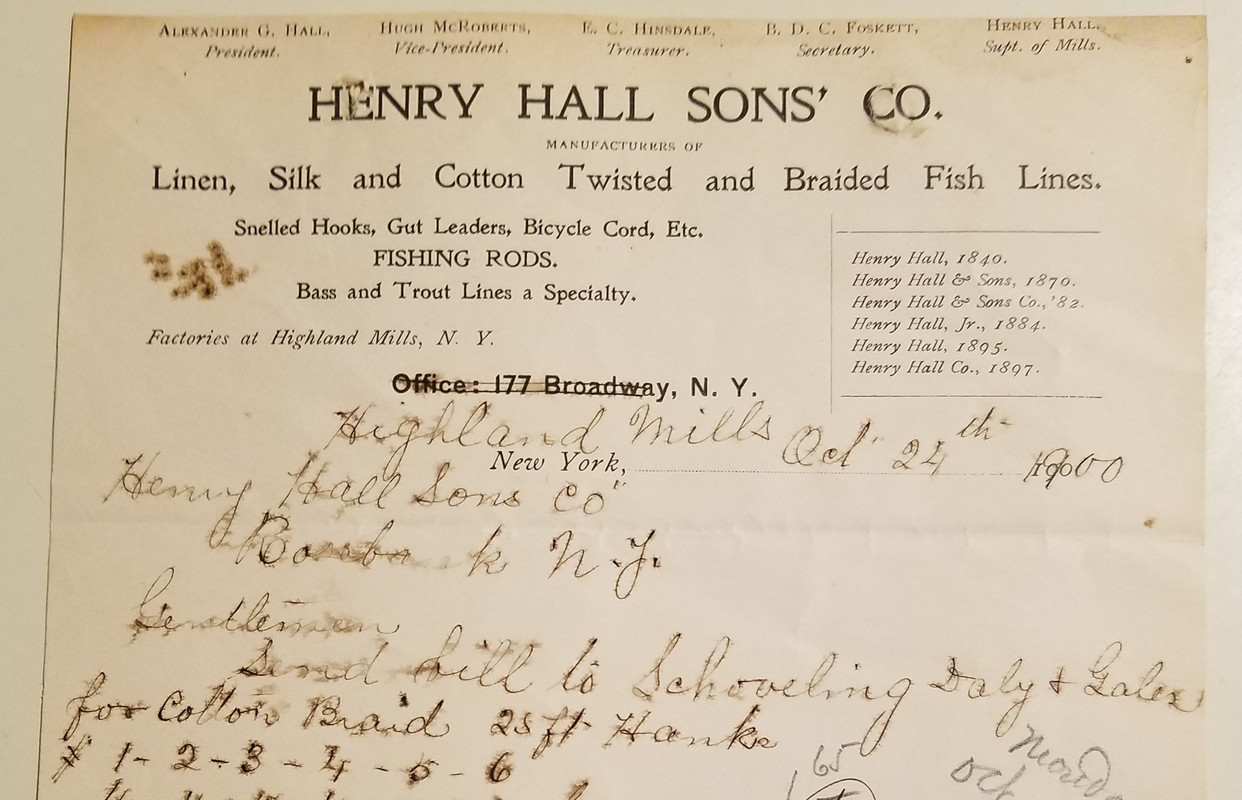 Alexander G. Hall, Hugh McRoberts, E. C. Hinsdale, B. D. C. Foskett, Henry Hall,
President. Vice-President. Treasurer. Secretary. Supt. of Mills.
HENRY HALL SONS' CO.
MANUFACTURERS OF
Linen, Silk and Cotton Twisted and Braided Fish Lines.
Snelled Hooks, Gut Leaders, Bicycle Cord, Etc.
FISHING RODS.
Bass and Trout Lines a Specialty.
Factories at Highland Mills, N. Y.
Henry Hall, 1840.
Henry Hall & Sons, 1870.
Henry Hall & Sons Co., '82.
Henry Hall, Jr., 1884.
Henry Hall, 1895.
Henry Hall Co., 1897.
Office: 177 Broadway, N. Y.
Highland Mills Oct 24th 1900
New York,
Henry Hall Sons Co
N.J.
Gentlemen
Send bill to Schoveling Daly & Gales
for Cotton Braid 25 ft Hanks
# 1 - 2 - 3 - 4 - 5 - 6
65
Oct